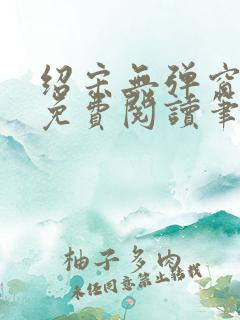 绍宋无弹窗
免費閱讀筆
柚子多肉
未经同意禁止转载